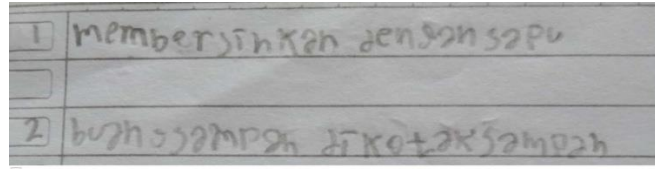 1 membersinkan dengan sapu
2 buang sampah di kotak sampah